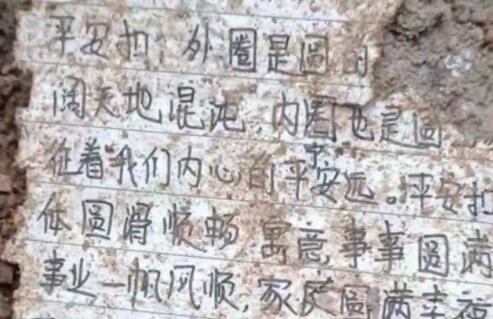 平安扣 外圈是圆
阔天地混沌,内圈也是圆
征着我们内心的平安宁远。平安扣
体圆滑顺畅 寓意事事圆满
事业一帆风顺,家庭圆满幸福